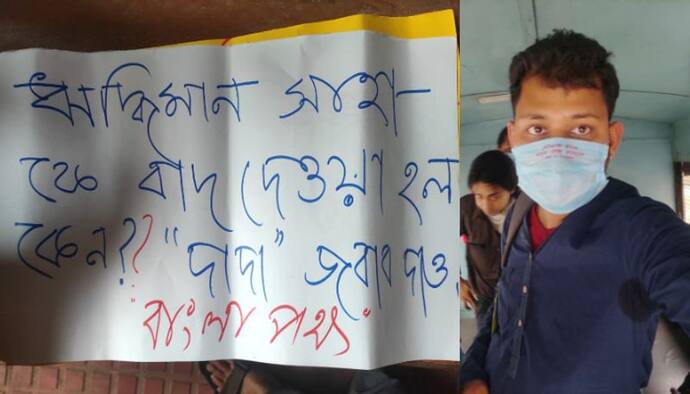 ঋদ্ধিমান সাহা-
কে বাদ দেওয়া হল
কেন?? "দাদা" জবাব দাও.
বাংলা পক্ষ